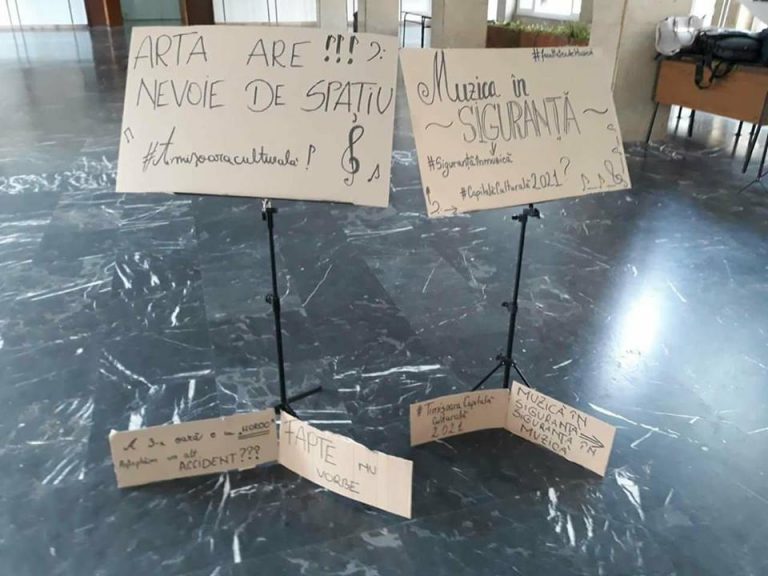 ARTA ARE !!!
NEVOIE DE SPAȚIU
#Timișoaraculturală!
Muzica în
~ SIGURANȚĂ ~
#SiguranțăÎnmuzică
#CapitalăCulturală2021?
A 3-a oară e cu „NOROC”
Așteptăm un alt
ACCIDENT???
FAPTE NU
VORBE
#Timișoara Capitală
Culturală
2021
MUZICĂ ÎN
SIGURANȚĂ
SIGURANȚĂ ÎN
MUZICĂ